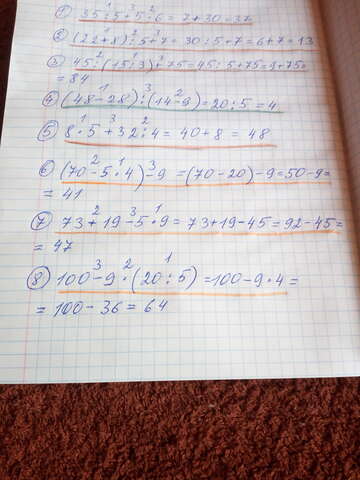 ① 35:5+5·6=7+30=37
② (22+8):5+7=30:5+7=6+7=13
③ 45:(15:3)+75=45:5+75=9+75=
=84
④ (48-28):(14-9)=20:5=4
⑤ 8·5+32:4=40+8=48
⑥ (70-5·4)-9=(70-20)-9=50-9=
=41
⑦ 73+19-5·9=73+19-45=92-45=
=47
⑧ 100-9·(20:5)=100-9·4=
=100-36=64